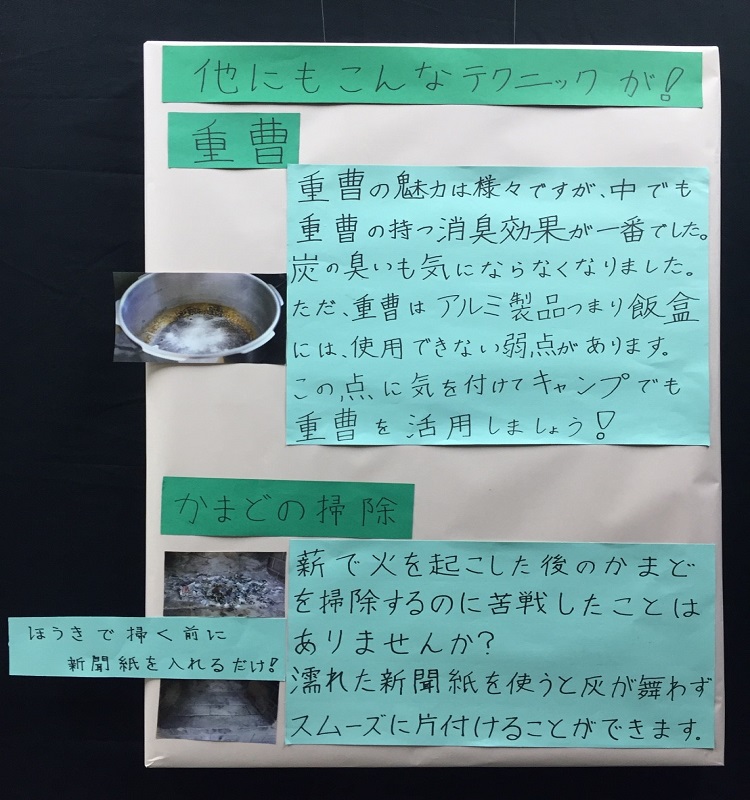 他にもこんなテクニックが!
重曹
重曹の魅力は様々ですが、中でも
重曹の持つ消臭効果が一番でした。
炭の臭いも気にならなくなりました。
ただ、重曹はアルミ製品つまり飯盒
には、使用できない弱点があります。
この点に気を付けてキャンプでも
重曹を活用しましょう!
かまどの掃除
ほうきで掃く前に
新聞紙を入れるだけ!
薪で火を起こした後のかまど
を掃除するのに苦戦したことは
ありませんか?
濡れた新聞紙を使うと灰が舞わず
スムーズに片付けることができます。